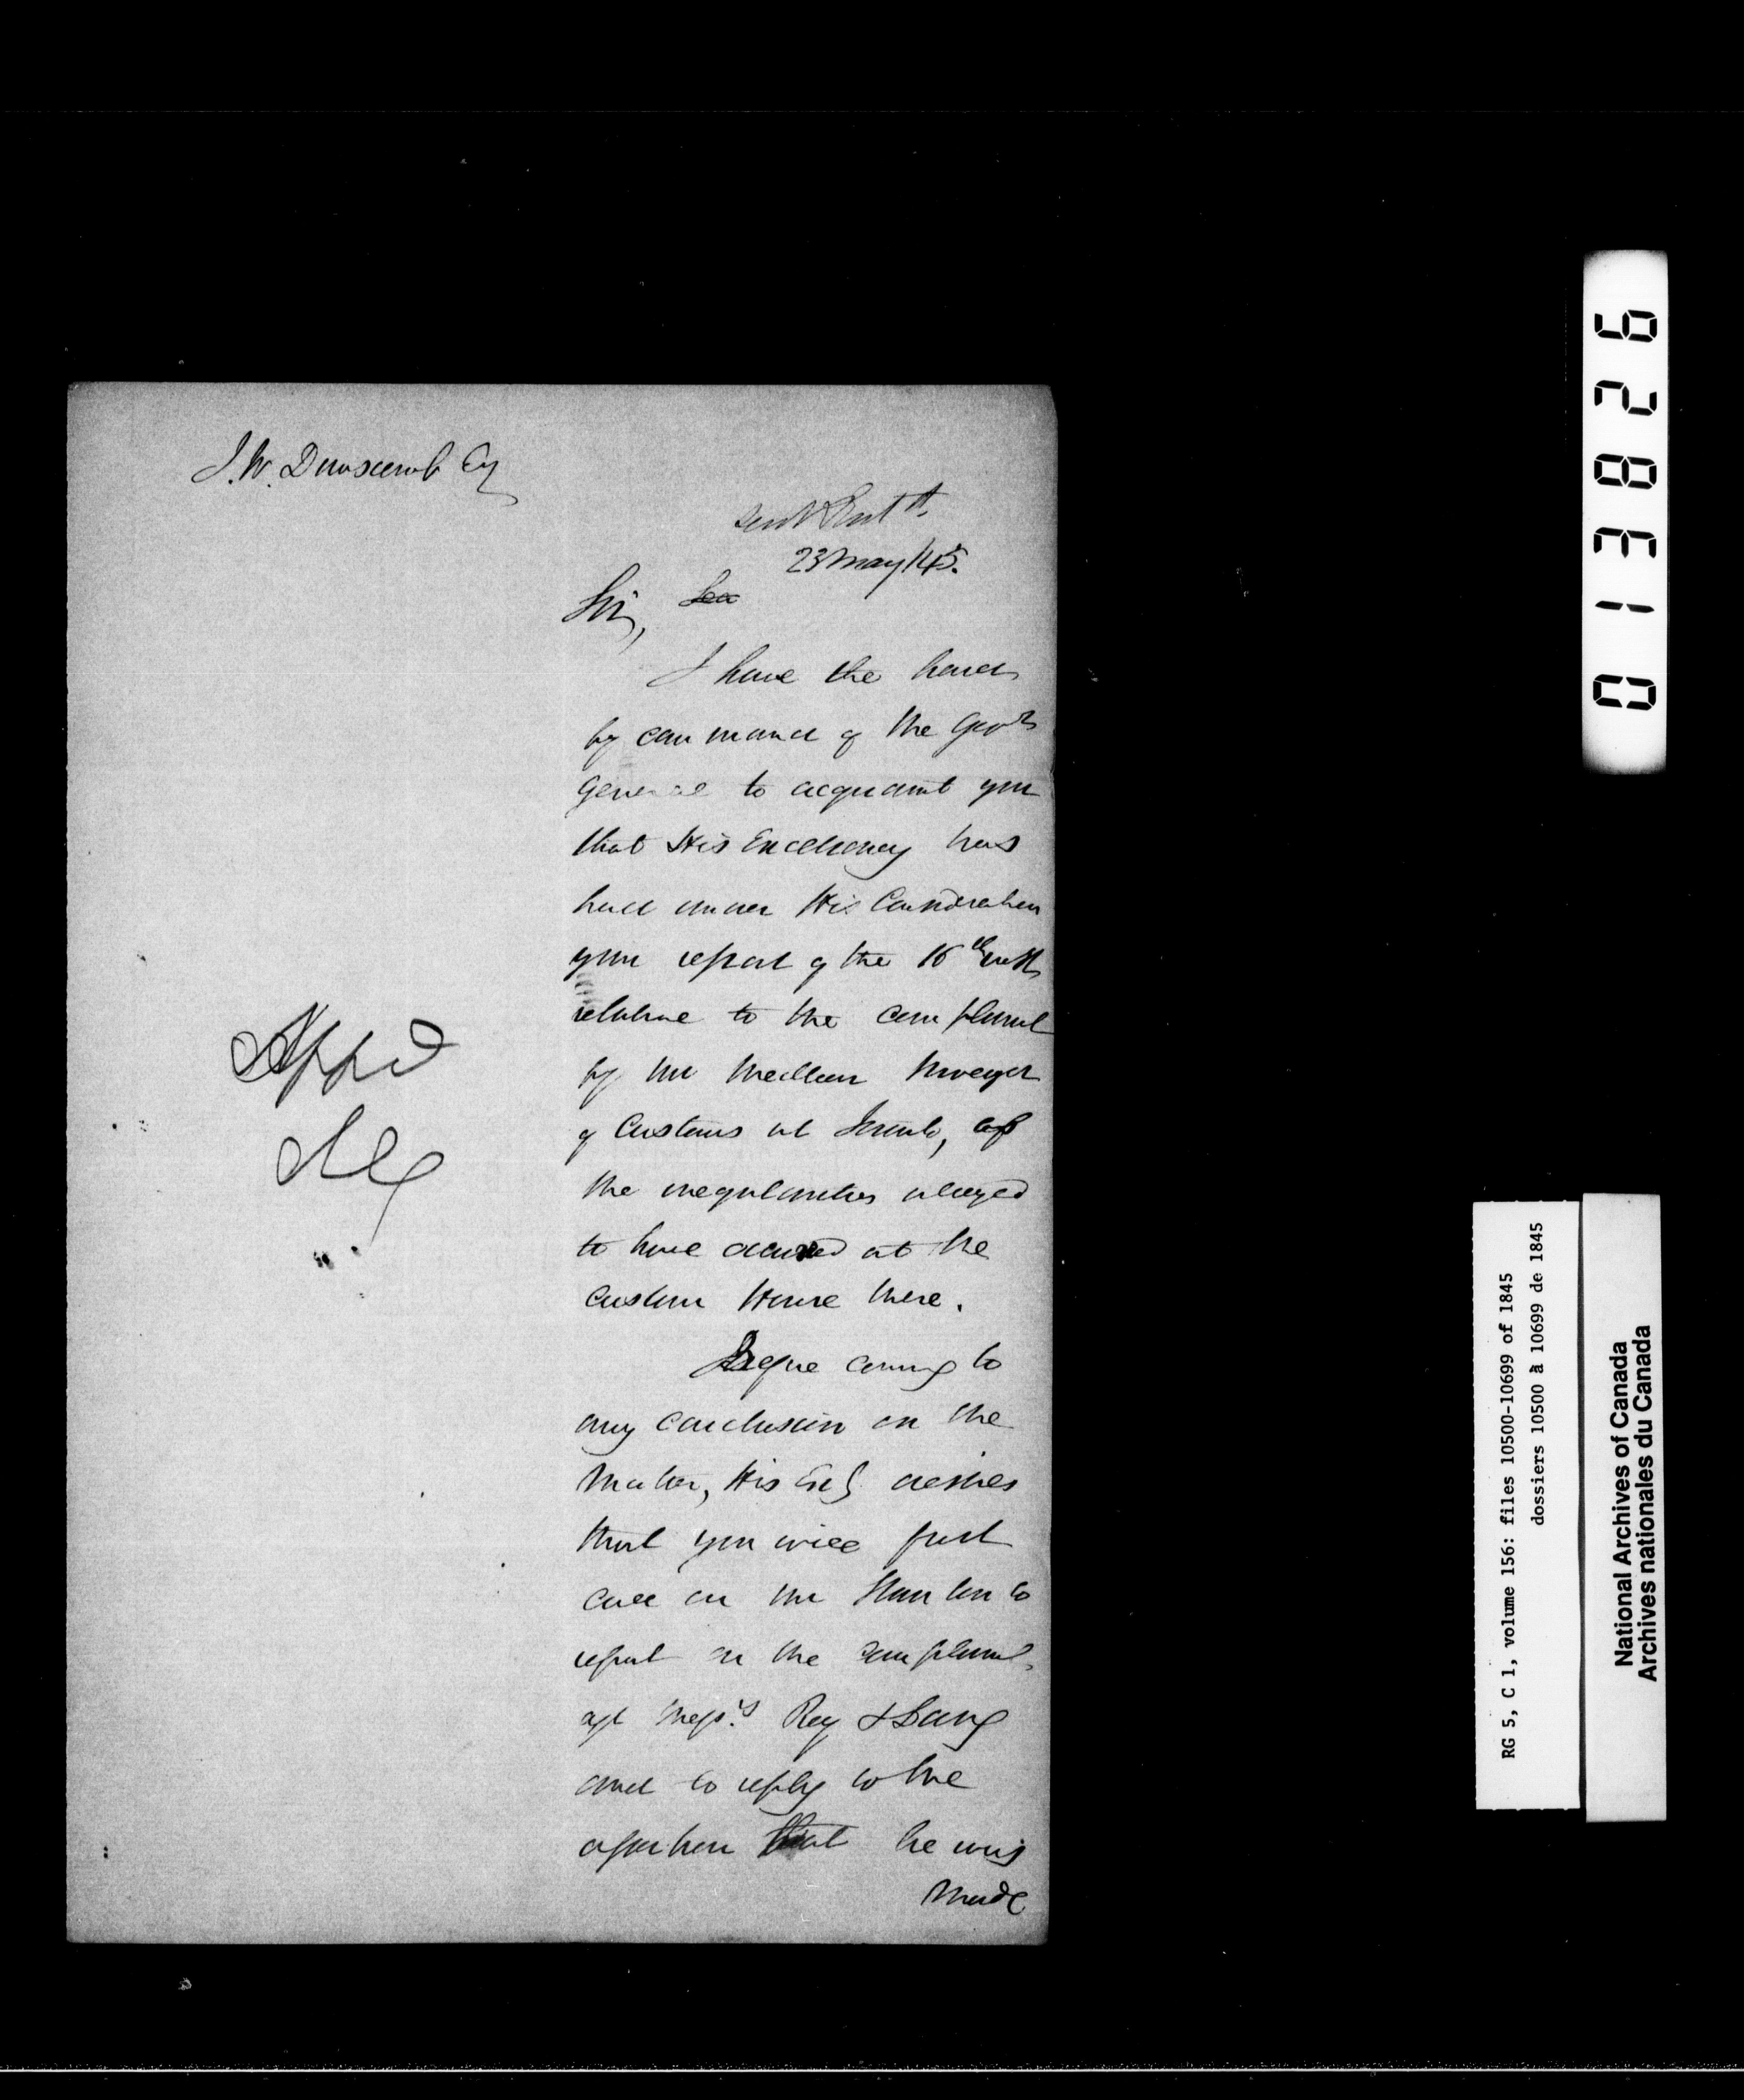 J. W. Dunscomb Esq
23 May/45.
Sir,
I have the honor
by command of the Govr
General to acquaint you
that His Excellency has
had under His Consideration
your report of the 16th inst
relative to the complaint
by Mr Meudell Surveyor
of Customs at Toronto, of
the irregularities alleged
to have occurred at the
Custom House there.
Before coming to
any conclusion on the
Matter, His Exc desires
that you will first
call on Mr Stanton to
report on the complaint
agt Messrs Roy &
and to reply to the
assertion that he was
made
Appd
013826
RG 5, C 1, volume 156: files 10500-10699 of 1845
dossiers 10500 à 10699 de 1845
National Archives of Canada
Archives nationales du Canada